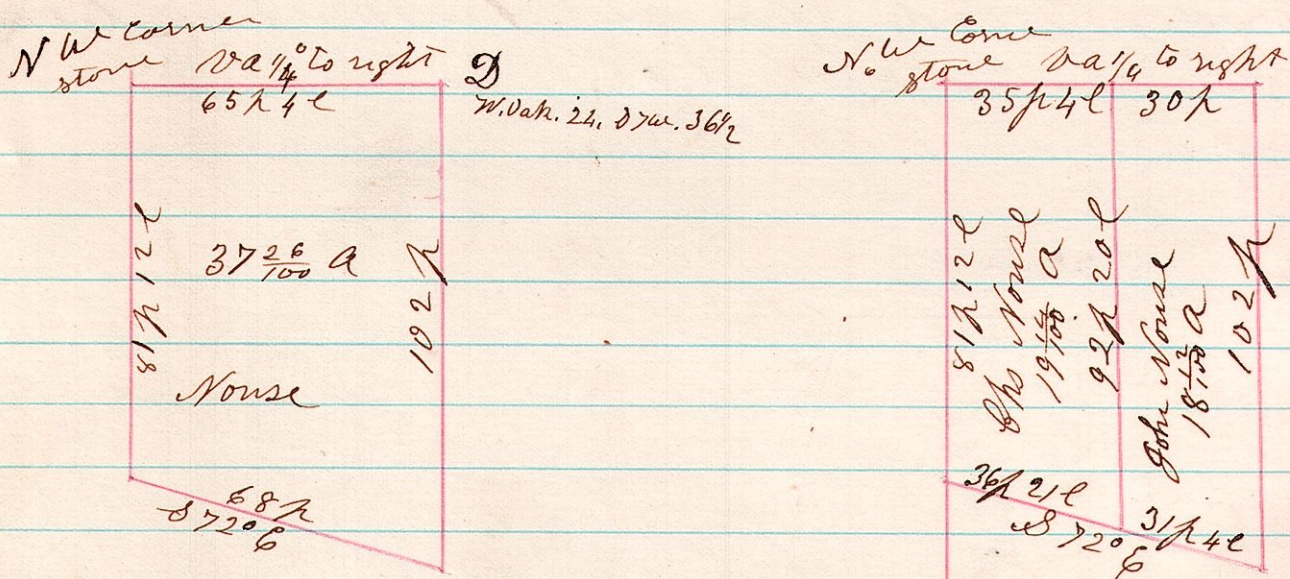 N W Corner
stone Va 1/4° to right
65p 4l
D
W.Oak. 24. S7W. 36 1/2
81p 12l
37 26/100 A
102p
Nouse
68p
S 72° E
No W Corne
stone Va 1/4 to right
35p4l 30p
81p12l
Chs Nouse
19 14/100 A
92p 20l
John Nouse
18 12/100 A
102p
36p 21l
S 72° E
31p 4l